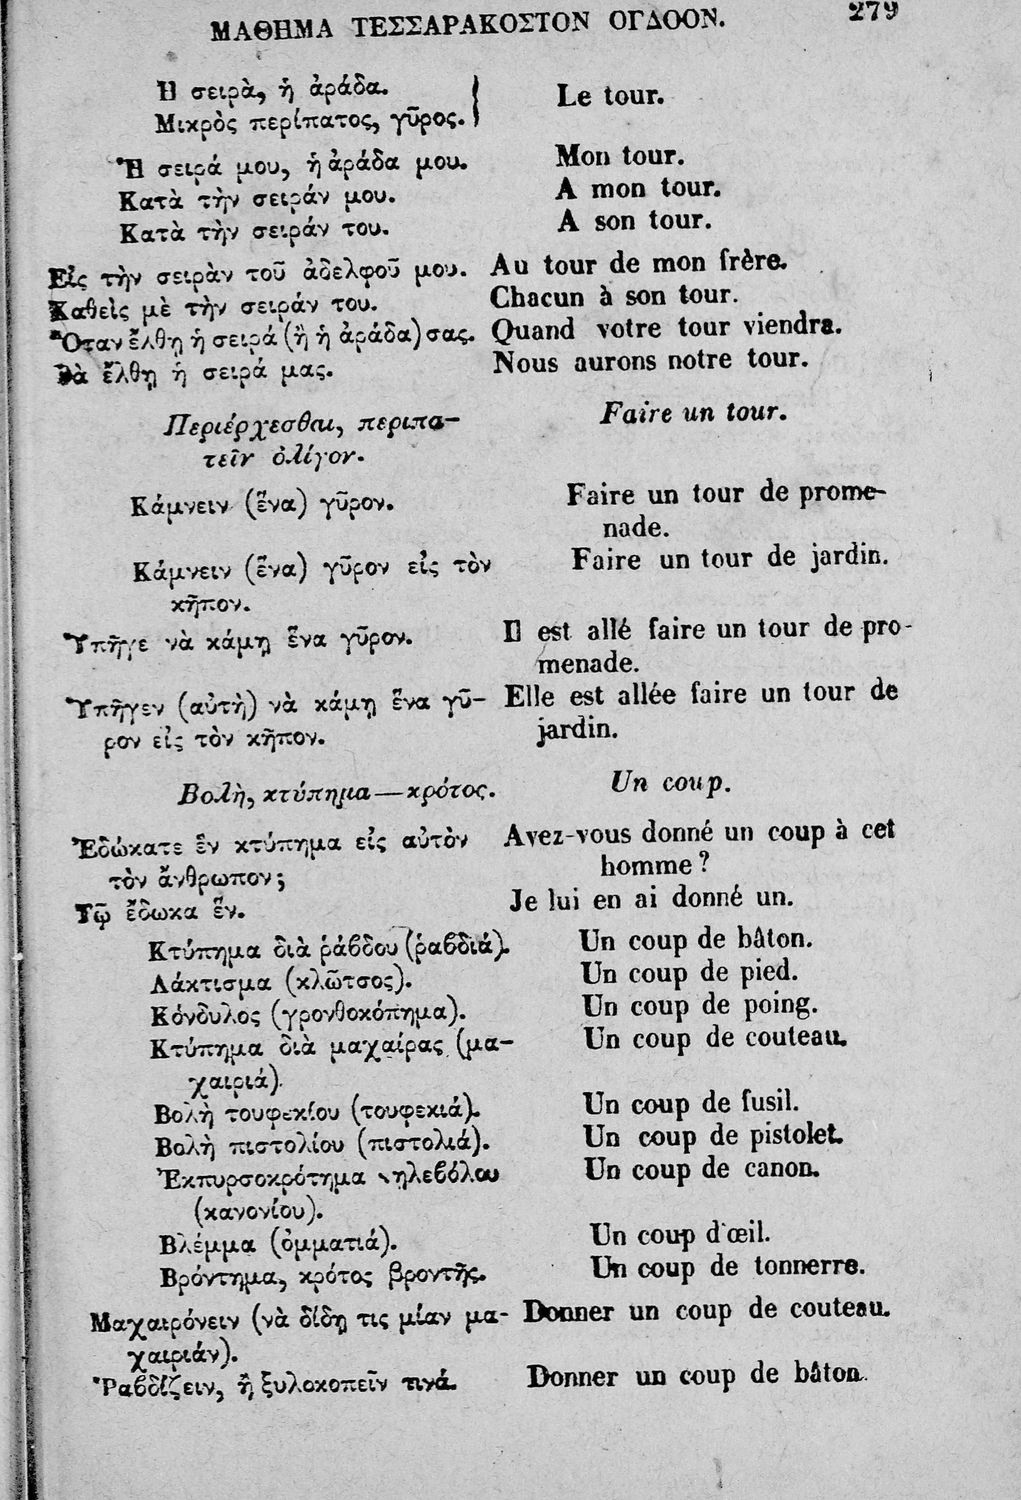 ΜΑΘΗΜΑ ΤΕΣΣΑΡΑΚΟΣΤΟΝ ΟΓΔΟΟΝ. 279
Ἡ σειρὰ, ἡ ἀράδα.
Μικρὸς περίπατος, γῦρος. } Le tour.
Ἡ σειρά μου, ἡ ἀράδα μου. Mon tour.
Κατὰ τὴν σειράν μου. A mon tour.
Κατὰ τὴν σειράν του. A son tour.
Εἰς τὴν σειρὰν τοῦ ἀδελφοῦ μου. Au tour de mon frère.
Καθεὶς μὲ τὴν σειράν του. Chacun à son tour.
Ὅταν ἔλθῃ ἡ σειρά (ἢ ἡ ἀράδα) σας. Quand votre tour viendra.
Θὰ ἔλθῃ ἡ σειρά μας. Nous aurons notre tour.
Περιέρχεσθαι, περιπα- Faire un tour.
τεῖν ὀλίγον.
Κάμνειν (ἕνα) γῦρον. Faire un tour de prome-
nade.
Κάμνειν (ἕνα) γῦρον εἰς τὸν Faire un tour de jardin.
κῆπον.
Ὑπῆγε νὰ κάμῃ ἕνα γῦρον. Il est allé faire un tour de pro-
menade.
Ὑπῆγεν (αὐτὴ) νὰ κάμῃ ἕνα γῦ- Elle est allée faire un tour de
ρον εἰς τὸν κῆπον. jardin.
Βολὴ, κτύπημα—κρότος. Un coup.
Ἐδώκατε ἓν κτύπημα εἰς αὐτὸν Avez-vous donné un coup à cet
τὸν ἄνθρωπον; homme ?
Τῷ ἔδωκα ἕν. Je lui en ai donné un.
Κτύπημα διὰ ῥάβδου (ῥαβδιά). Un coup de bâton.
Λάκτισμα (κλῶτσος). Un coup de pied.
Κόνδυλος (γρονθοκόπημα). Un coup de poing.
Κτύπημα διὰ μαχαίρας (μα- Un coup de couteau.
χαιριά).
Βολὴ τουφεκίου (τουφεκιά). Un coup de fusil.
Βολὴ πιστολίου (πιστολιά). Un coup de pistolet.
Ἐκπυρσοκρότημα τηλεβόλου Un coup de canon.
(κανονίου).
Βλέμμα (ὀμματιά). Un coup d'œil.
Βρόντημα, κρότος βροντῆς. Un coup de tonnerre.
Μαχαιρόνειν (νὰ δίδῃ τις μίαν μα- Donner un coup de couteau.
χαιριάν).
Ῥαβδίζειν, ἢ ξυλοκοπεῖν τινά. Donner un coup de bâton.